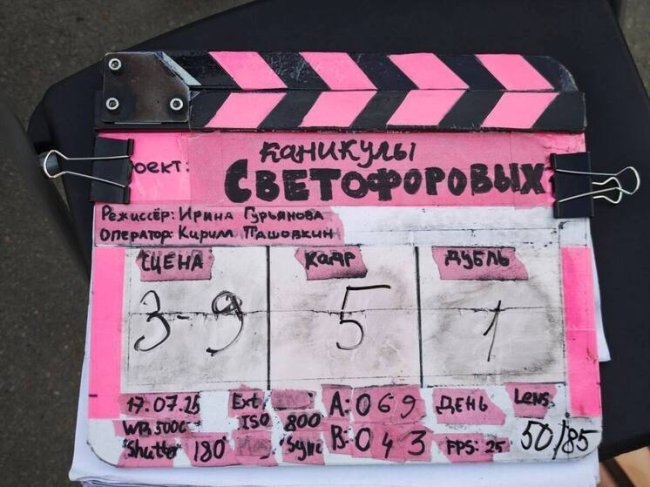 оект: КАНИКУЛЫ
СВЕТОФОРОВЫХ
Режиссёр: Ирина Гурьянова
Оператор: Кирилл Пашовкин
СЦЕНА КАДР ДУБЛЬ
3-9 5 1
17.07.25 Ext A: 069 ДЕНЬ Lens
WB 5000 ISO 800 B: 043 FPS: 25 50/85
Shutter 180° Sync